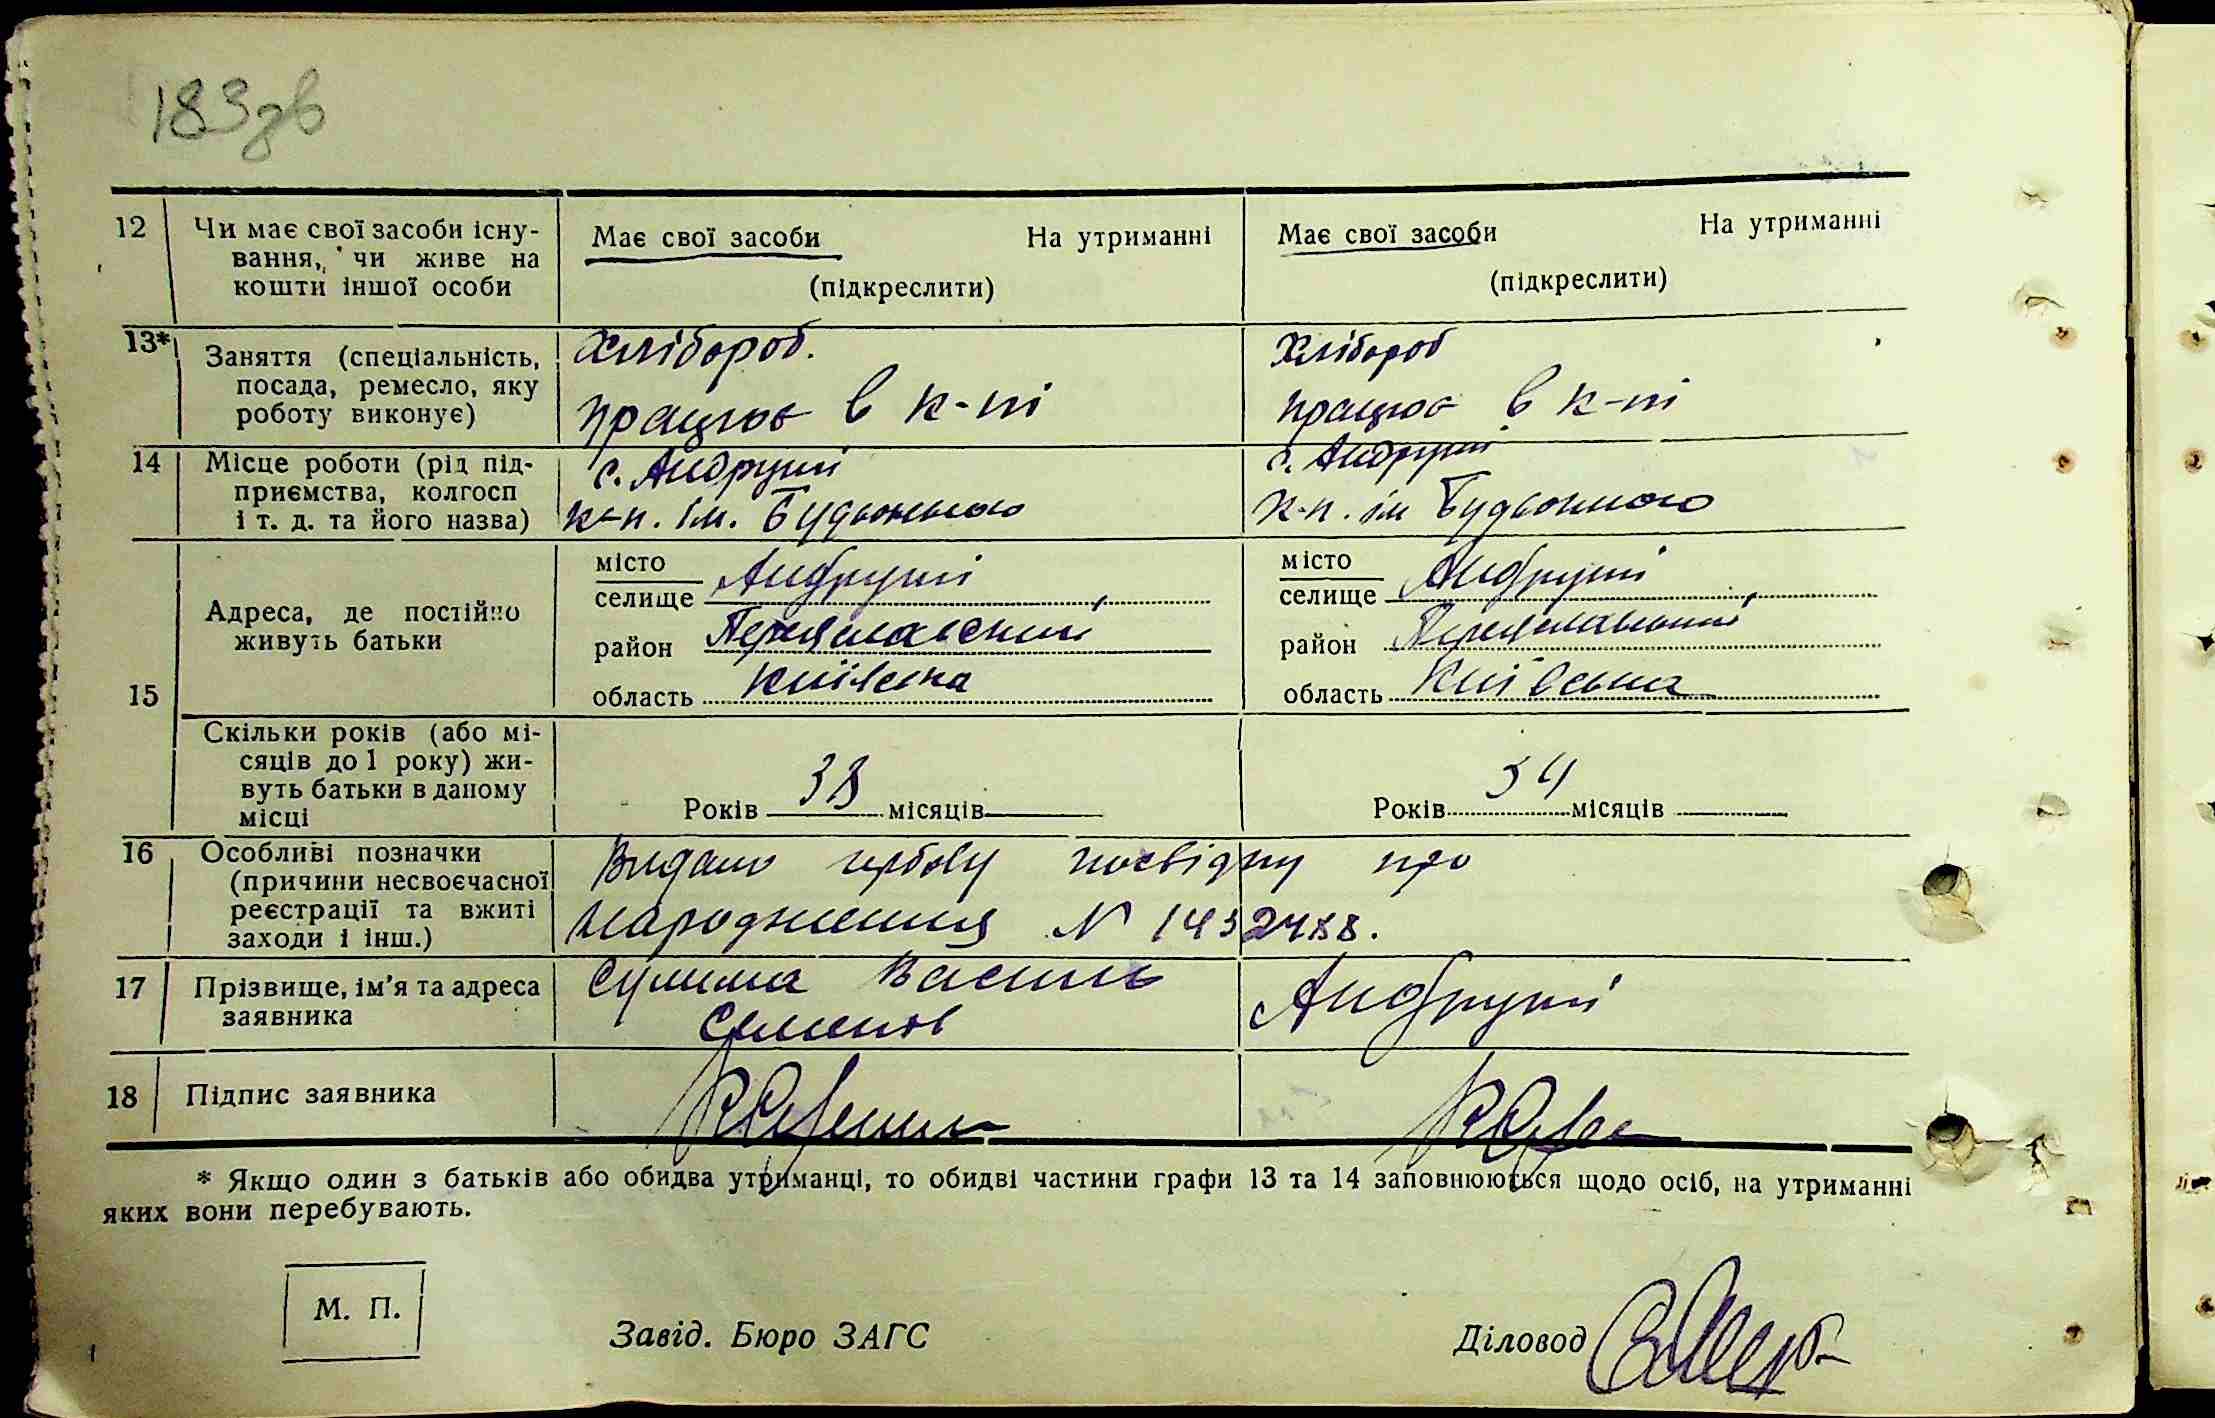 183зв
12 Чи має свої засоби існу- Має свої засоби На утриманні Має свої засоби На утриманні
вання, чи живе на
кошти іншої особи (підкреслити) (підкреслити)
13* Заняття (спеціальність, Хлібороб. Хлібороб
посада, ремесло, яку
роботу виконує) працює в к-пі працює в к-пі
14 Місце роботи (рід під- с. Андруші с. Андруші
приємства, колгосп
і т. д. та його назва) к-п. ім. Будьонного к-п. ім Будьонного
15 Адреса, де постійно
живуть батьки
місто
селище Андруші
район Переяславський
область Київська
місто
селище Андруші
район Переяславський
область Київська
Скільки років (або мі-
сяців до 1 року) жи-
вуть батьки в даному
місці
Років 38 місяців
Років 34 місяців
16 Особливі позначки Видано гербову посвідку про
(причини несвоєчасної
реєстрації та вжиті народження N
заходи і інш.)
17 Прізвище, ім'я та адреса Сулима Василь Андруші
заявника Семенов
18 Підпис заявника
* Якщо один з батьків або обидва утриманці, то обидві частини графи 13 та 14 заповнюються щодо осіб, на утриманні
яких вони перебувають.
М. П.
Завід. Бюро ЗАГС Діловод